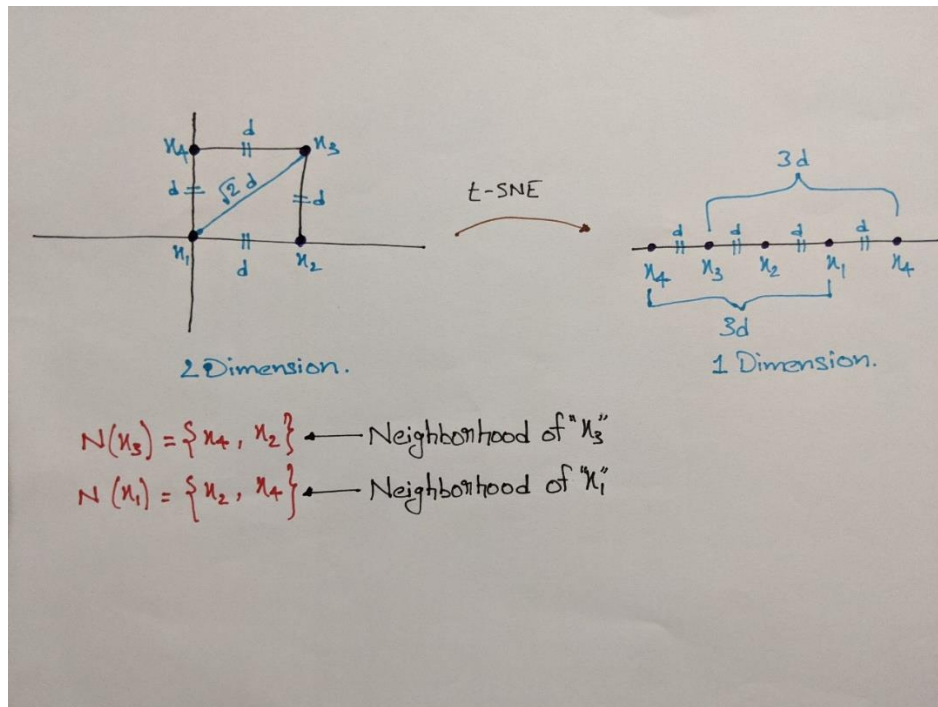 d
x₄ x₃
d √2 d d
x₁ d x₂
2 Dimension.
t-SNE
3d
d d d d
x₄ x₃ x₂ x₁ x₄
3d
1 Dimension.
N(x₃) = {x₄, x₂} ← Neighborhood of "x₃"
N(x₁) = {x₂, x₄} ← Neighborhood of "x₁"